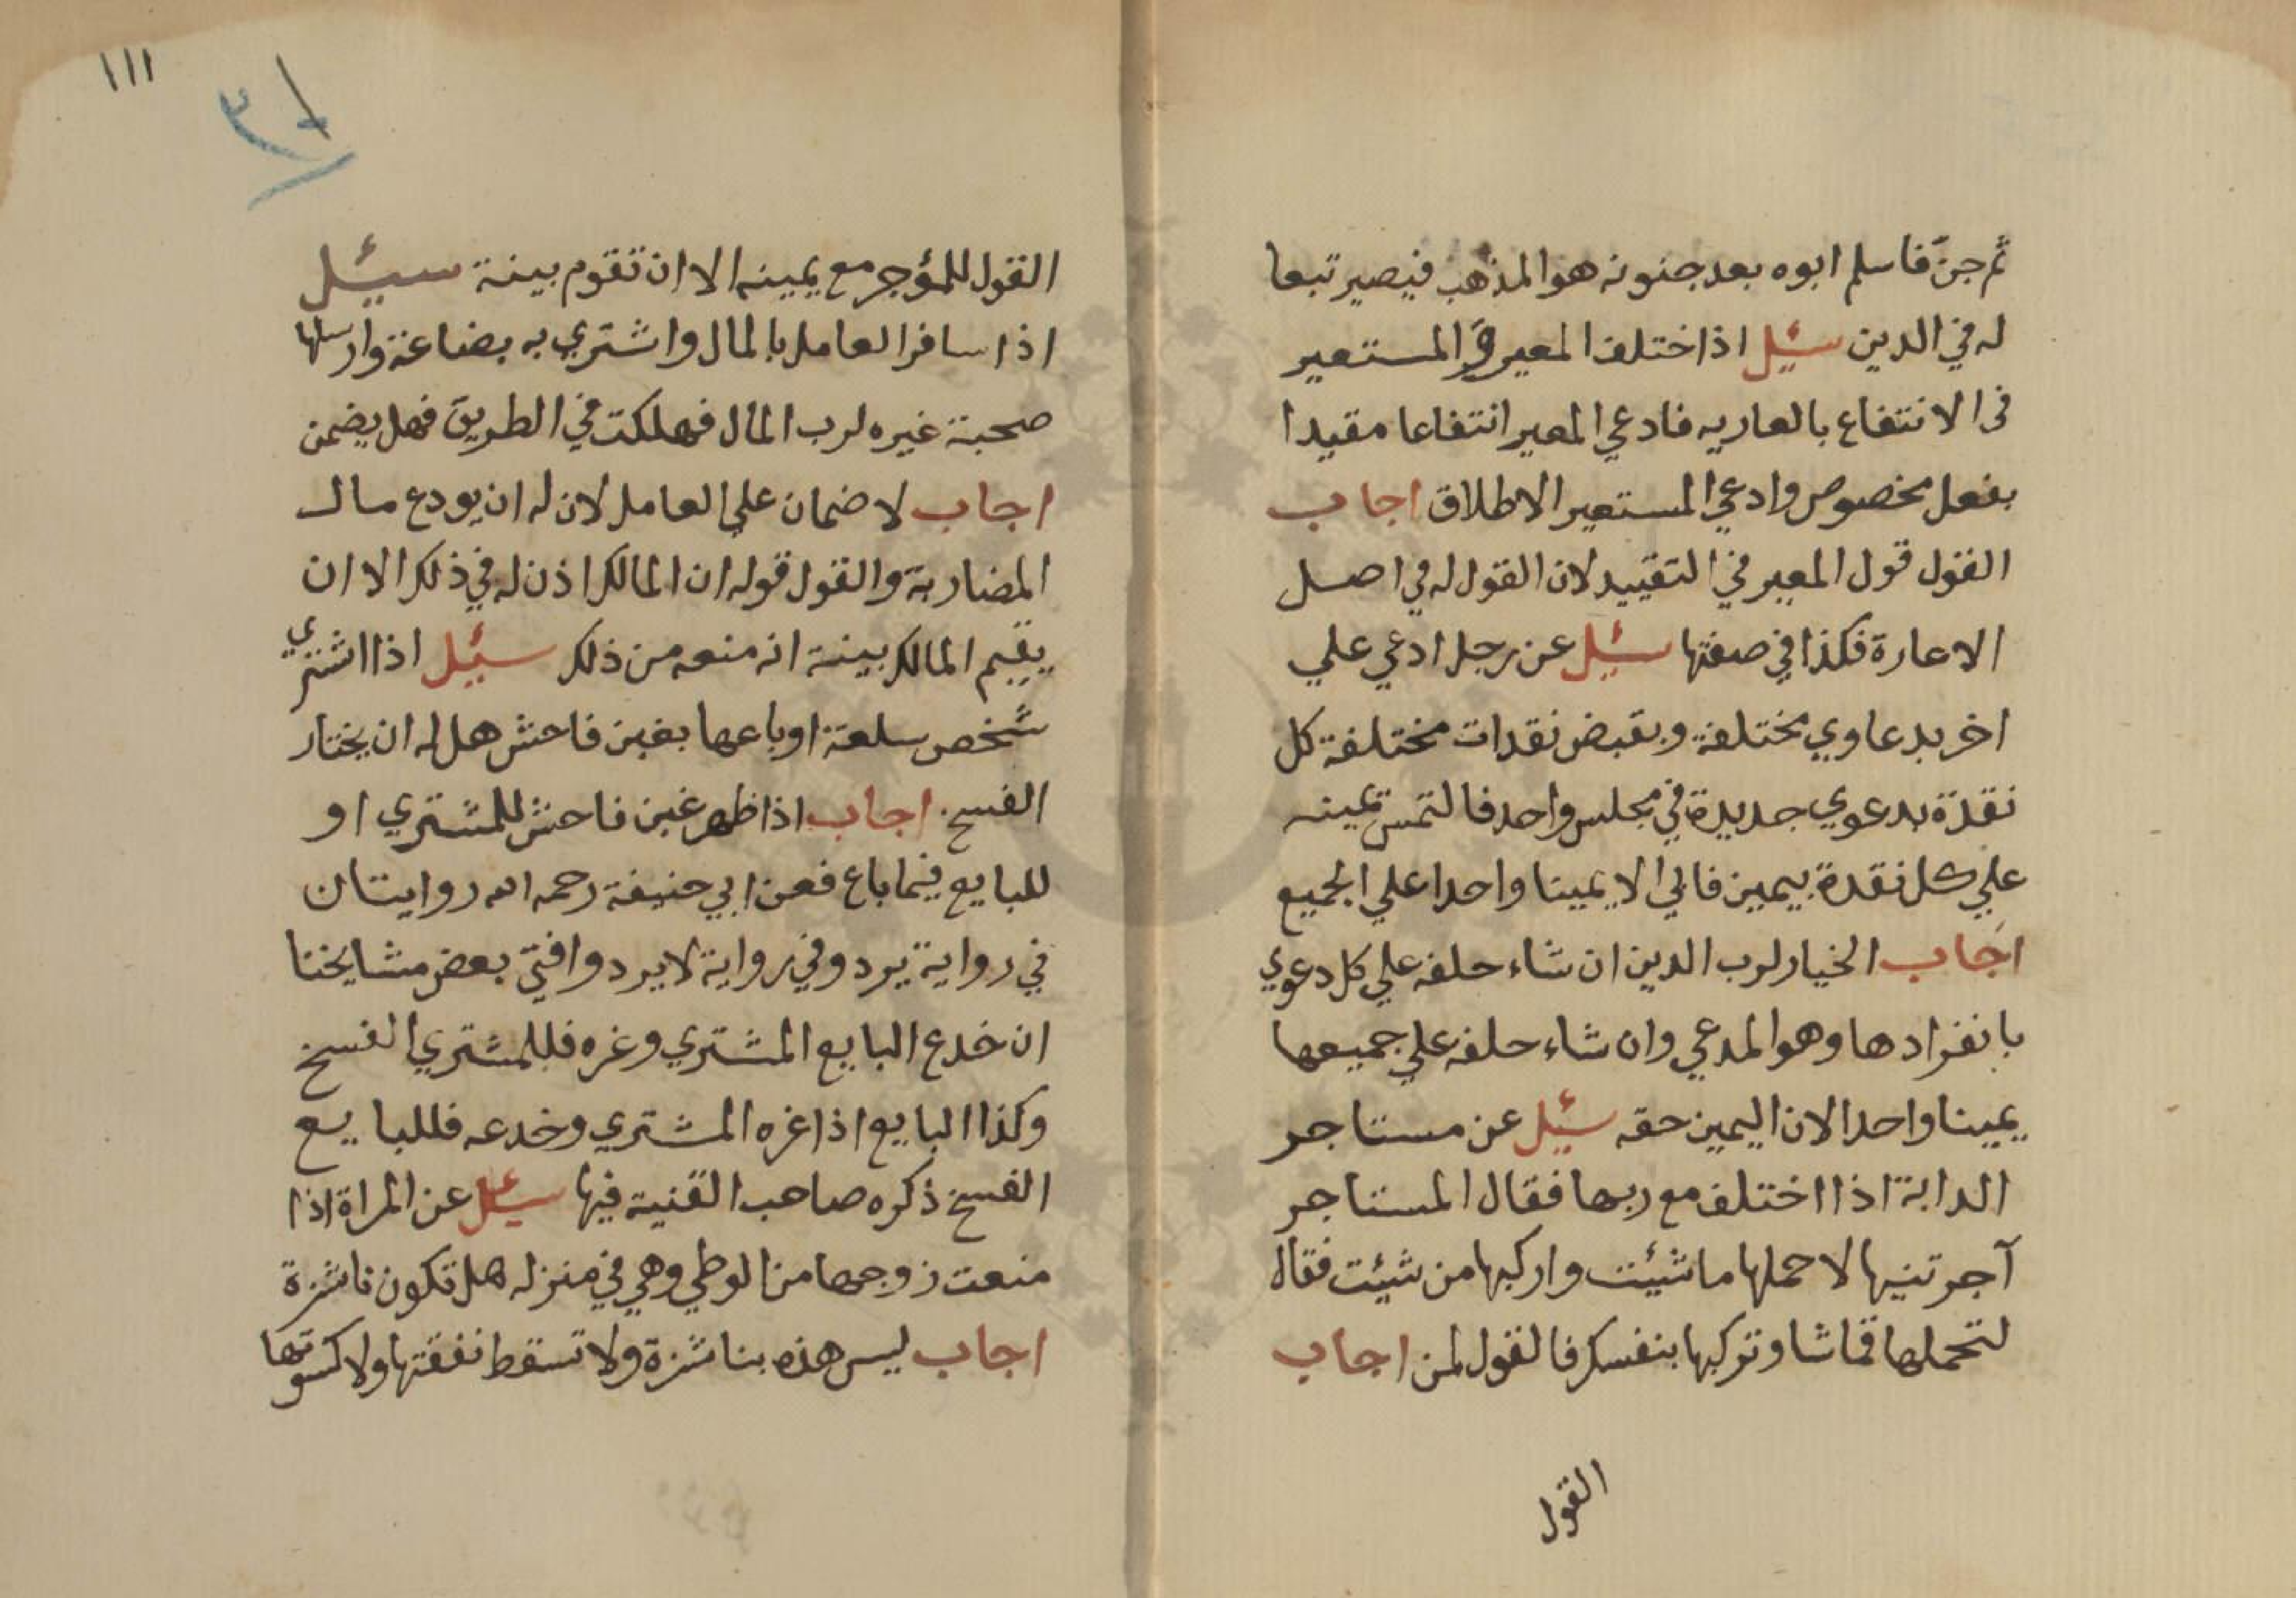 ثم جنّ فاسلم ابوه بعد جنونه هو المذهب فيصير تبعا
له في الدين سئيل اذا اختلف المعير و المستعير
فى الانتفاع بالعاريه فادعي المعير انتفاعا مقيدا
بفعل مخصوص وادعي المستعير الاطلاق اجاب
القول قول المعير في التقييد لان القول له في اصل
الاعارة فكذا في صفتها سئيل عن رجل ادعي علي
اخر بدعاوي مختلفة وبقبض نقدات مختلفة كل
نقدة بدعوي جديدة في مجلس واحد فالتمس يمينه
علي كل نقدة بيمين فابي الا يمينا واحدا علي الجميع
اجاب الخيار لرب الدين ان شاء حلفه علي كل دعوي
بانفرادها وهو المدعي وان شاء حلفه علي جميعها
يمينا واحدا لان اليمين حقه سئيل عن مستاجر
الدابة اذا اختلف مع ربها فقال المستاجر
آجرتنيها لاحملها ما شيئت واركبها من شيئت فقال
لتحملها قماشا وتركبها بنفسك فالقول لمن اجاب
القول
١١١
القول للمؤجر مع يمينه الا ان تقوم بينة سيئل
اذا سافر العامل بالمال واشتري به بضاعة وارسلها
صحبة غيره لرب المال فهلكت في الطريق فهل يضمن
اجاب لا ضمان علي العامل لان له ان يودع مال
المضاربة والقول قوله ان المالك اذن له في ذلك الا ان
يقيم المالك بينة انه منعه من ذلك سيئل اذا اشتري
شخص سلعة او باعها بغبن فاحش هل له ان يختار
الفسخ اجاب اذا ظهر غبن فاحش للمشتري او
للبايع فيما باع فعن ابي حنيفة رحمه الله روايتان
في رواية يرد وفي رواية لا يرد وافتي بعض مشايخنا
ان خدع البايع المشتري وغره فللمشتري الفسخ
وكذا البايع اذا غره المشتري وخدعه فللبايع
الفسخ ذكره صاحب القنية فيها سيئل عن المراة اذا
منعت زوجها من الوطي وهي في منزله هل تكون ناشزة
اجاب ليس هذه بناشزة ولا تسقط نفقتها ولا كسوتها